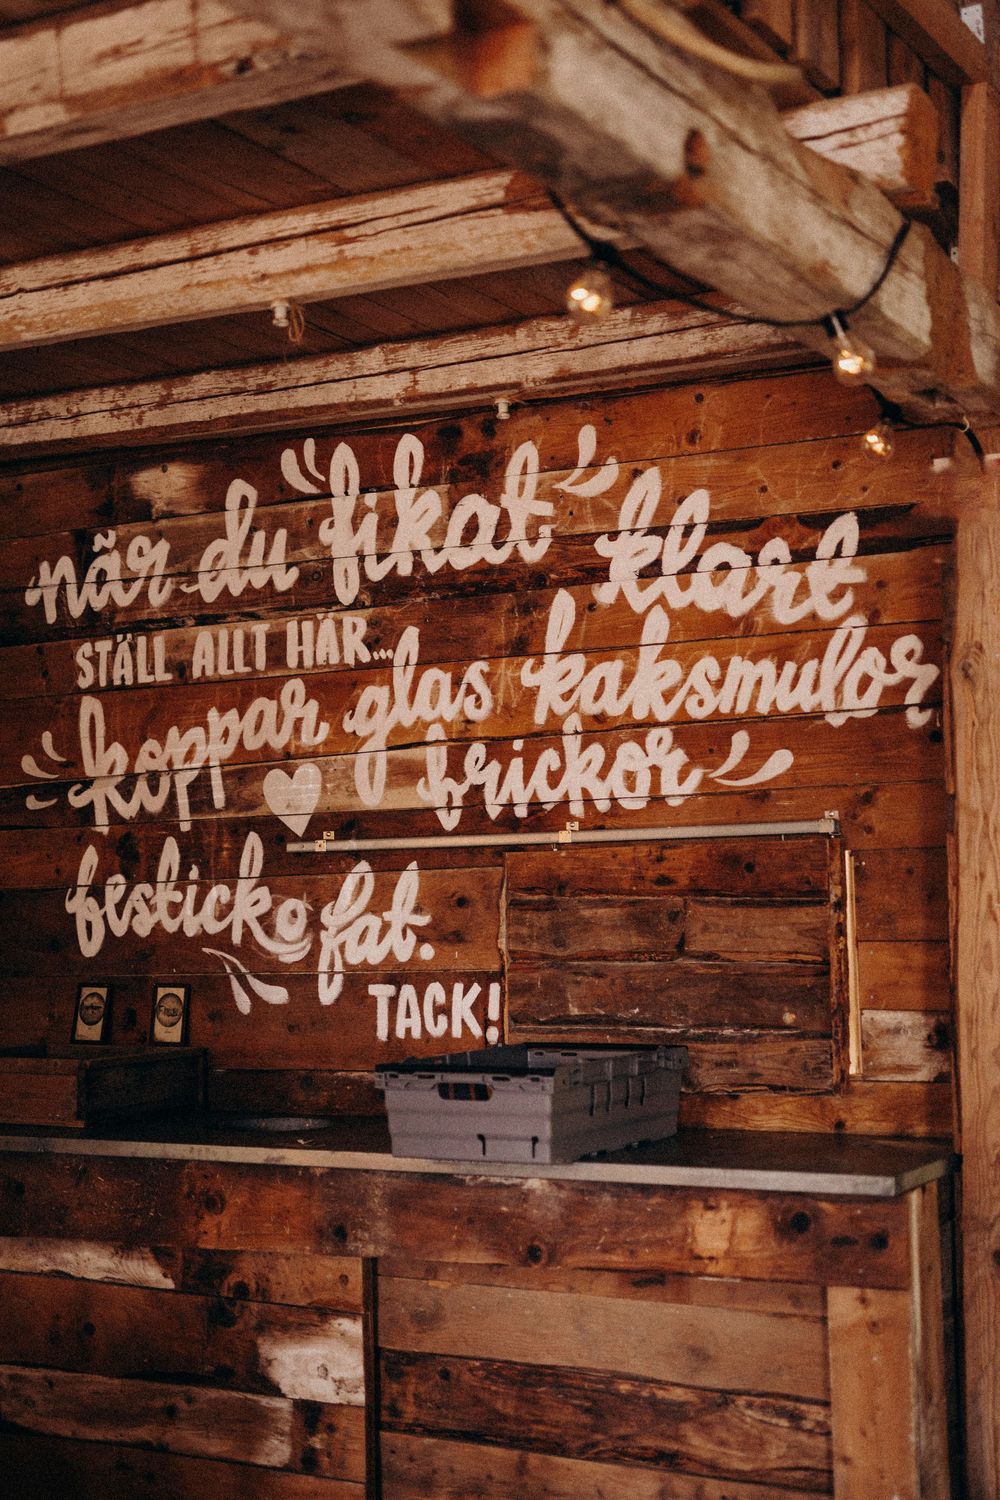 när du fikat klart
STÄLL ALLT HÄR...
koppar glas kaksmulor
kopp ♥ brickor
festick o fat.
TACK!